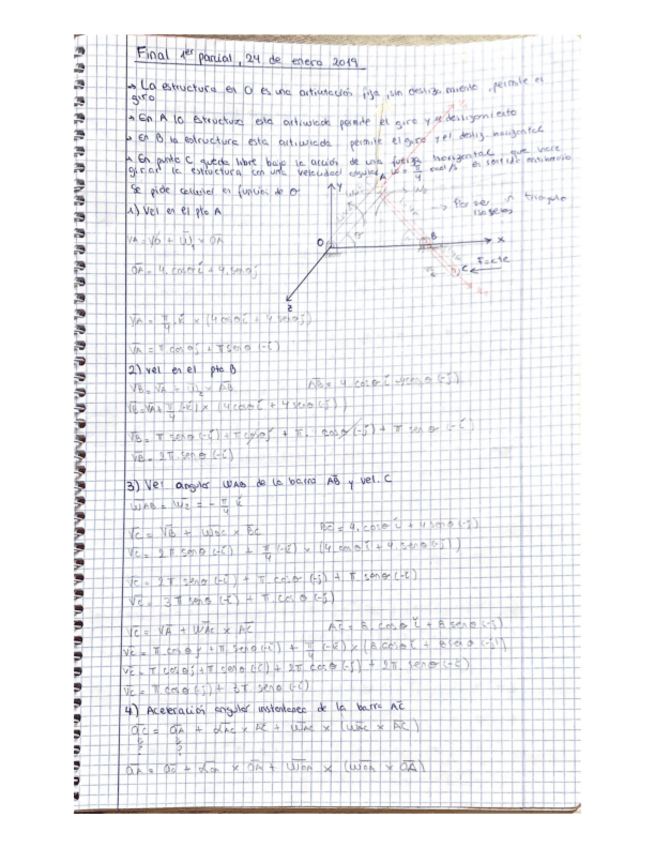 Final 1er parcial, 24 de enero 2019
→ La estructura en O es una articulación fija, sin deslizamiento, permite el
giro
→ En A la estructura esta articulada permite el giro y deslizamiento
→ En B la estructura esta articulada permite el giro y el desliz. horizontal
→ En punto C queda libre bajo la acción de una fuerza horizontal que hace
girar la estructura con una velocidad angular π/4 rad/s en sentido antihorario
Se pide calcular en función de θ
1) Vel en el pto A
y
A
→ Por ser triangulo
isosceles
VA = VO + W1 × OA
O
B
x
C
F=cte
OA = 4.cosθ i + 4.senθ j
z
VA = π/4 . k × (4cosθ i + 4senθ j)
VA = π cosθ j + π senθ (-i)
2) vel en el pto B
VB = VA + W2 × AB
AB = 4 cosθ i + 4senθ (-j)
VB = VA + π/4 (-k) × (4cosθ i + 4senθ (-j))
VB = π senθ (-i) + π cosθ j + π. cosθ (-j) + π senθ (-i)
VB = 2π.senθ (-i)
3) Vel angular WAB de la barra AB y vel. C
WAB = W2 = - π/4 k
VC = VB + WBC × BC
BC = 4.cosθ i + 4senθ (-j)
VC = 2π senθ (-i) + π/4 (-k) × (4.cosθ i + 4.senθ (-j))
VC = 2π senθ (-i) + π cosθ (-j) + π senθ (-i)
VC = 3π senθ (-i) + π cosθ (-j)
VC = VA + WAC × AC
AC = 8.cosθ i + 8senθ (-j)
VC = π cosθ j + π.senθ (-i) + π/4 (-k) × (8cosθ i + 8senθ (-j))
VC = π cosθ j + π senθ (-i) + 2π cosθ (-j) + 2π senθ (-i)
VC = π cosθ (-j) + 3π senθ (-i)
4) Aceleración angular instantanea de la barra AC
aC = aA + αAC × AC + WAC × (WAC × AC)
? ?
aA = aO + αOA × OA + WOA × (WOA × OA)